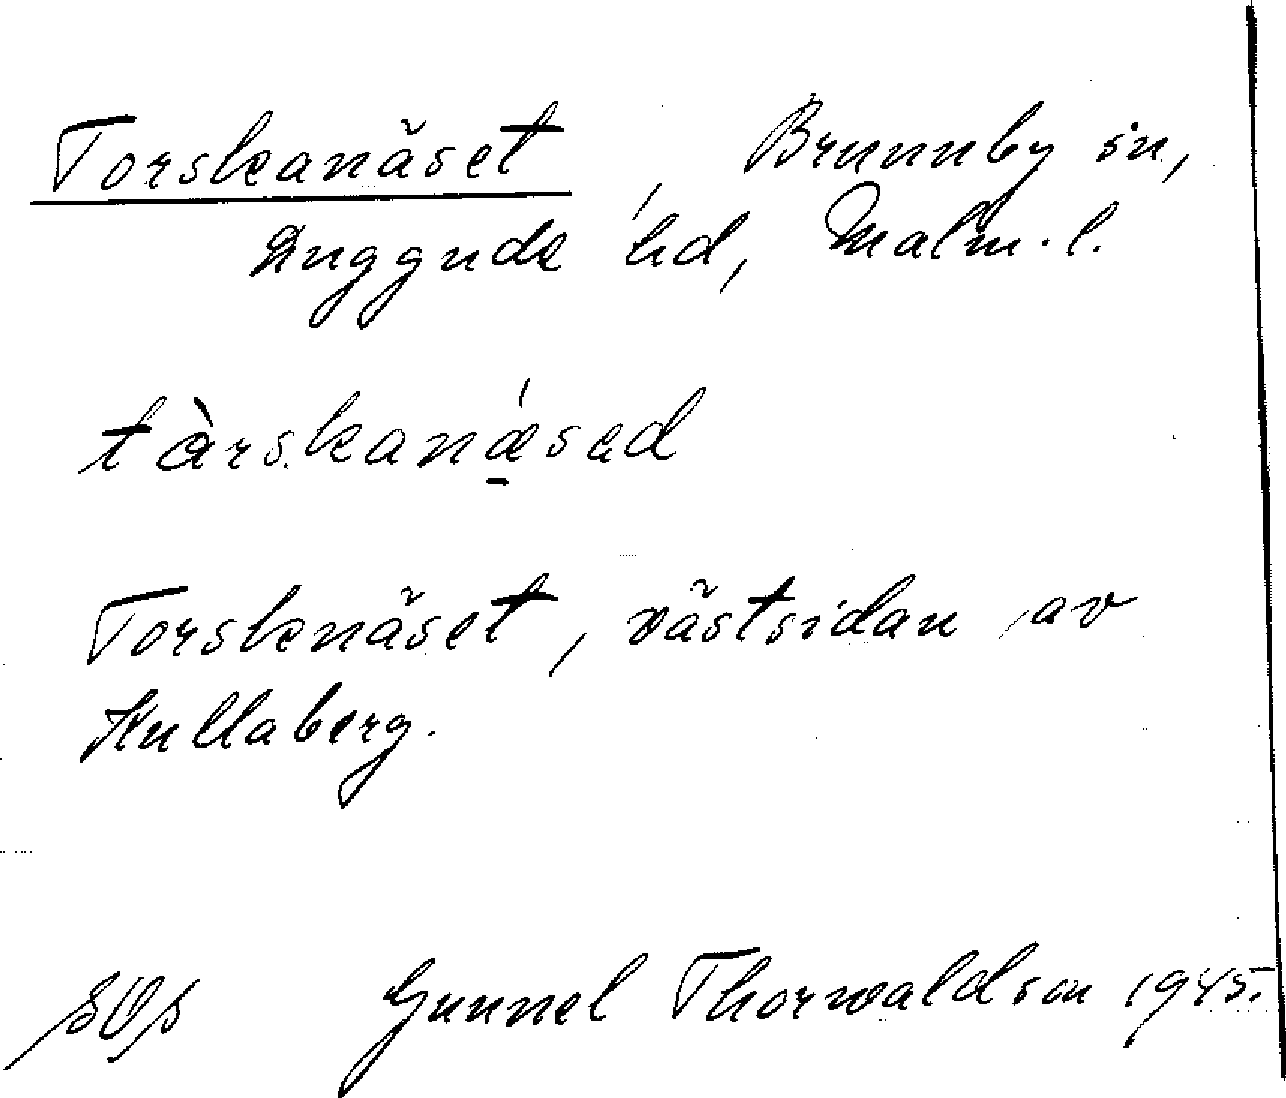 Torskanäset, Brunnby sn,
Luggude hd, Malm. l.
tàrskanǽsəd
Torsknäset, västsidan av
Kullaberg.
Gunnel Thorwaldson 1945.